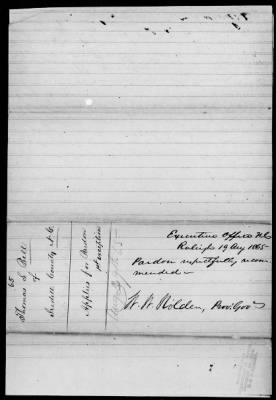 65
Thomas S. Bell
of
Iredell County N.C.
Applies for Pardon
1st exception
Executive Office N.C.
Raleigh 19 Aug 1865
Pardon respectfully recom-
mended -
W. W. Holden, Prov. Gov.